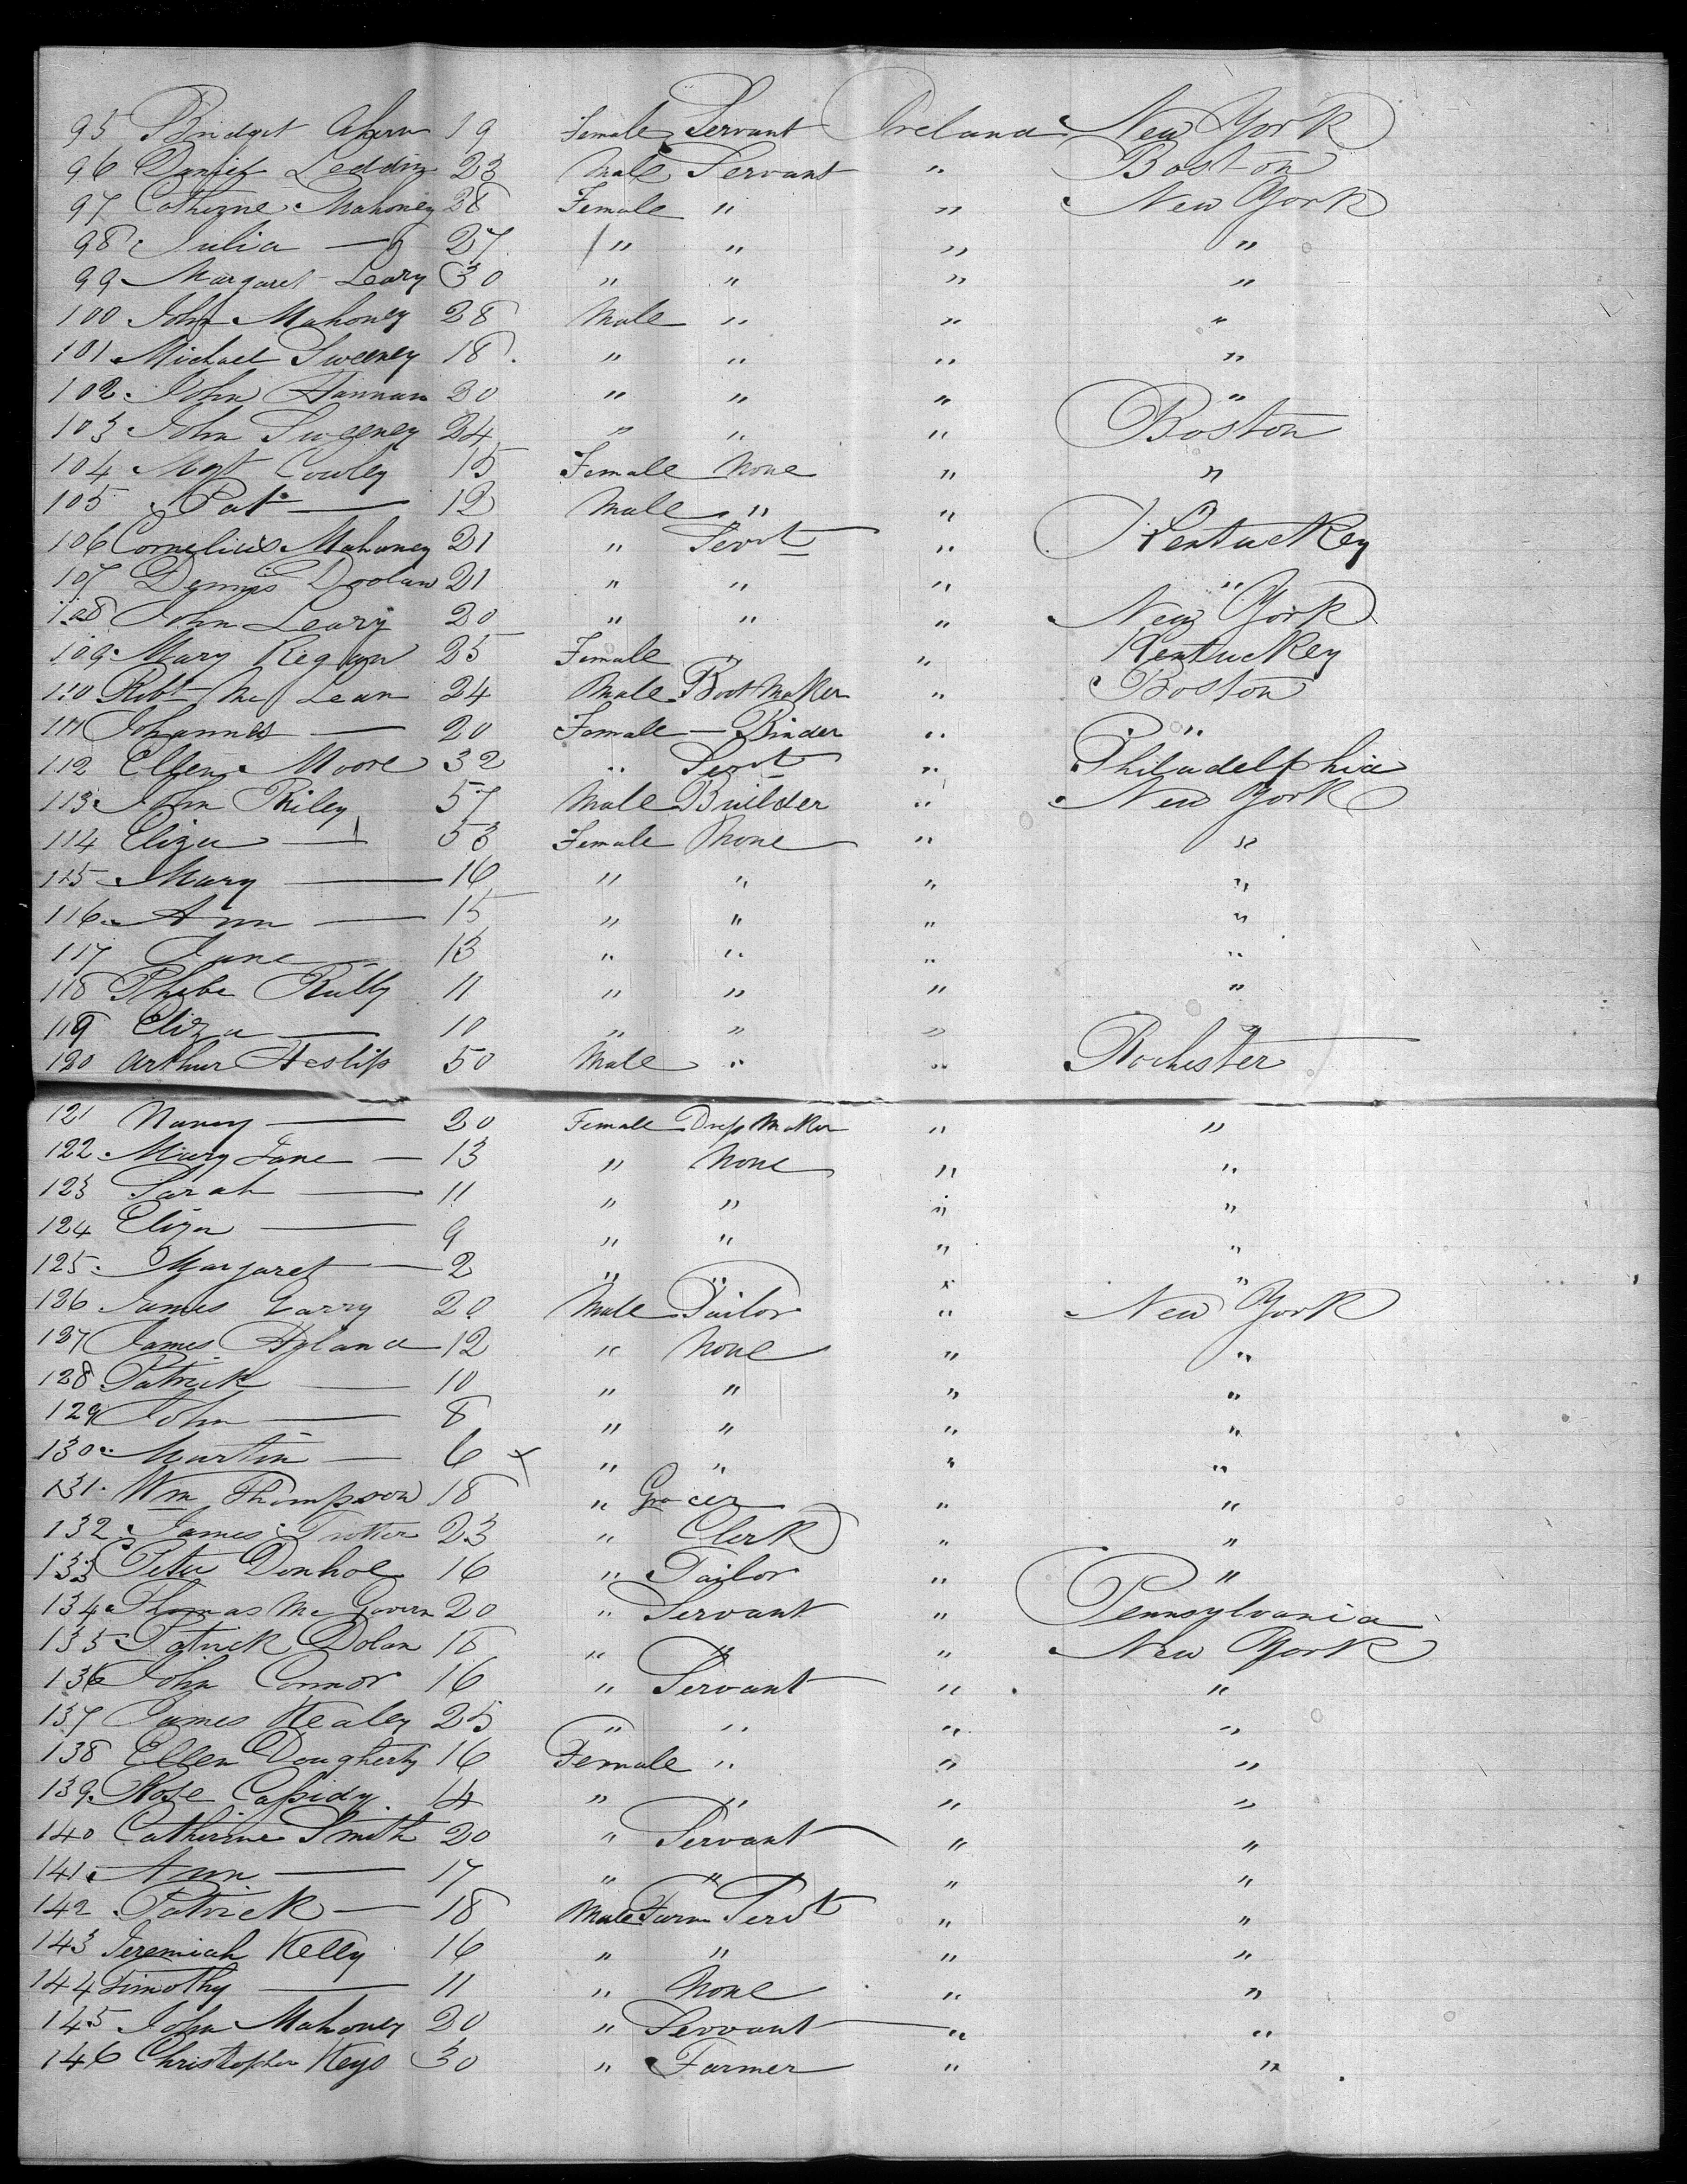 95 Bridget Ahern 19 Female Servant Ireland New York
96 Daniel Ledding 23 Male Servant " Boston
97 Catherine Mahoney 28 Female " " New York
98 Julia — 27 " " " "
99 Margaret Leary 30 " " " "
100 John Mahoney 28 Male " " "
101 Michael Sweeney 18 " " " "
102 John Hannan 30 " " " "
103 John Sweeney 24 " " " Boston
104 Mgt Cowley 15 Female None " "
105 Pat — 12 Male " "
106 Cornelius Mahoney 21 " Servt " Kentuckey
107 Dennis Doolan 21 " " " "
108 John Leary 20 " " " New York
109 Mary Regan 25 Female " " Kentuckey
110 Robt McLean 24 Male Boot Maker " Boston
111 Johanna — 20 Female — Binder " "
112 Ellen Moore 32 " Servt " Philadelphia
113 John Riley 57 Male Builder " New York
114 Eliza — 53 Female None " "
115 Mary — 16 " " " "
116 Ann — 15 " " " "
117 Jane 13 " " " "
118 Phebe 11 " " " "
119 Eliza — 10 " " " "
120 Arthur Heslip 50 Male " " Rochester
121 Nancy — 20 Female Dress Maker " "
122 Mary Jane — 13 " None " "
123 Sarah — 11 " " " "
124 Eliza — 9 " " " "
125 Margaret — 2 " " " "
126 James Garry 20 Male Tailor " New York
127 James Hyland 12 " None " "
128 Patrick — 10 " " " "
129 John — 8 " " " "
130 Martin — 6 x " " " "
131 Wm Thompson 18 " Grocer " "
132 James Trotter 23 " Clerk " "
133 Peter Donhoe 16 " Tailor " "
134 Thomas McGovern 20 " Servant " Pennsylvania
135 Patrick Dolan 18 " " " New York
136 John Connor 16 " Servant " "
137 James Kealey 25 " " " "
138 Ellen Dougherty 16 Female " " "
139 Rose Cassidy 14 " " " "
140 Catherine Smith 20 " Servant " "
141 Ann — 17 " " " "
142 Patrick — 18 Male Farm Servt " "
143 Jeremiah Kelly 16 " " " "
144 Timothy — 11 " None " "
145 John Mahoney 20 " Servant " "
146 Christopher Keys 30 " Farmer " "